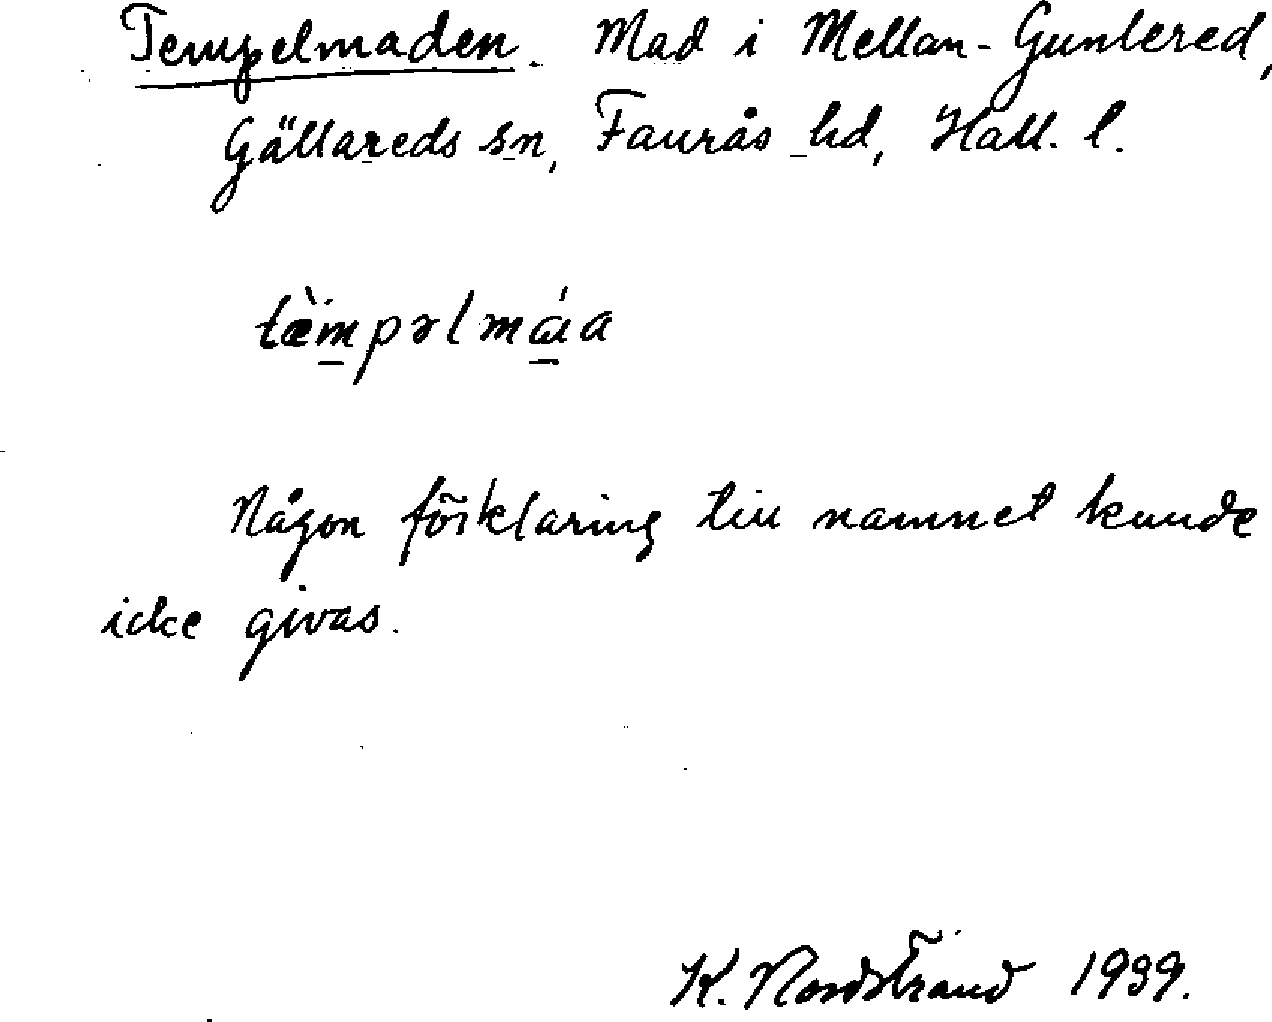 Tempelmaden. Mad i Mellan-Guntered,
Gällareds sn, Faurås hd, Hall. l.
tæ̀mpəlmáa
Någon förklaring till namnet kunde
icke givas.
K. Nordstrand 1939.